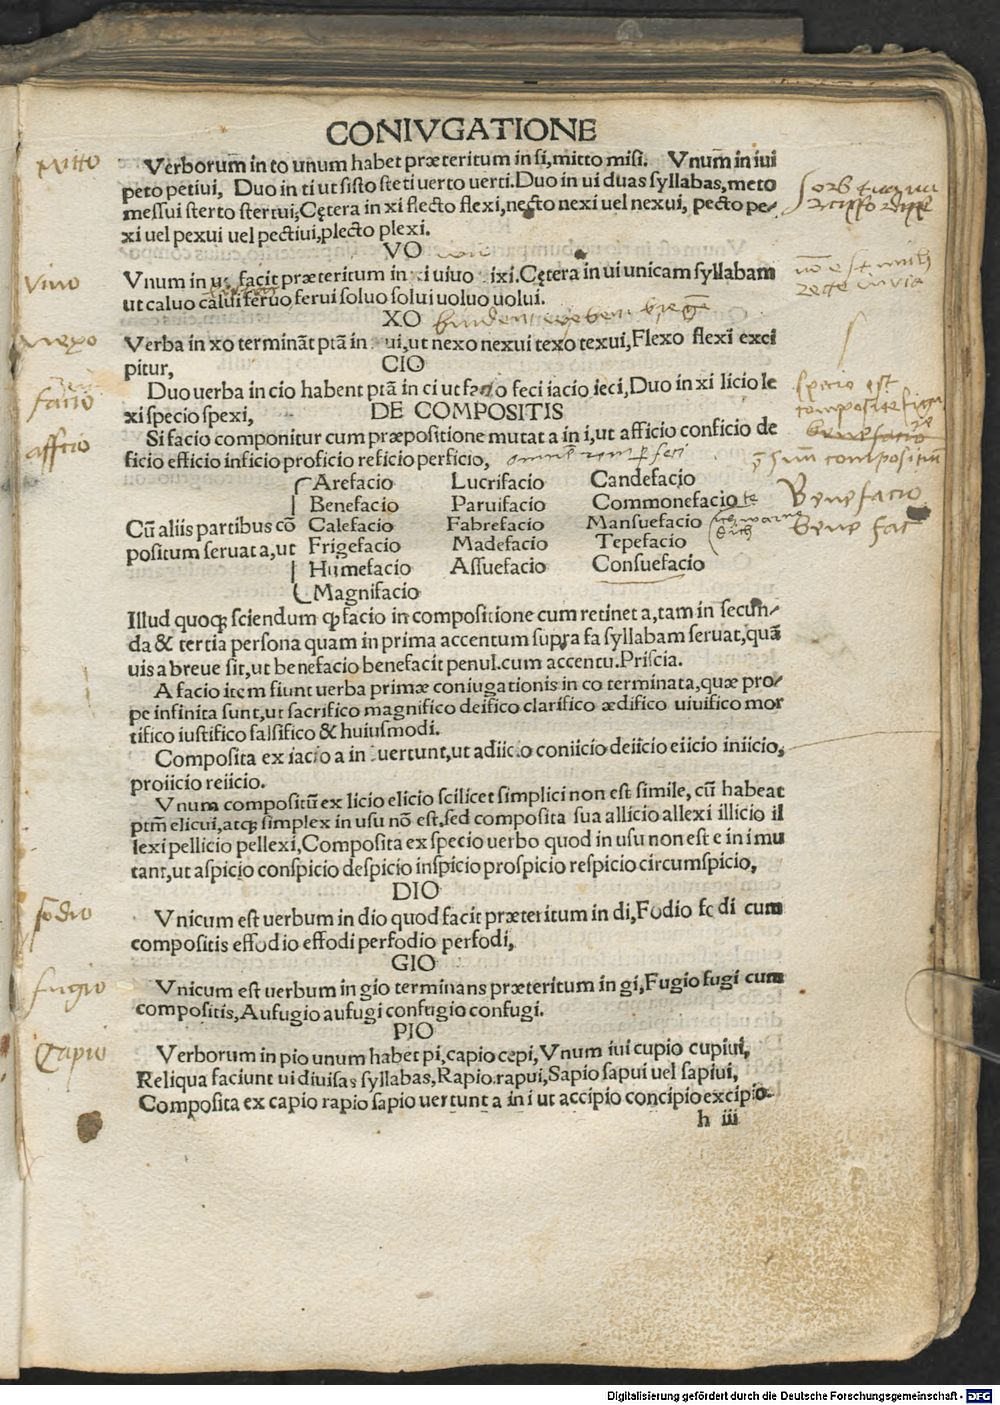 CONIVGATIONE
Mitto
Verborum̄ in to unum habet præteritum in ſi, mitto miſi. Vnum̄ in iui
peto petiui, Duo in ti ut ſiſto ſteti uerto uerti. Duo in ui duas ſyllabas, meto
meſſui ſterto ſtertui, Cętera in xi flecto flexi, necto nexi uel nexui, pecto pe⸗
xi uel pexui uel pectiui, plecto plexi.
VO
Viuo
Vnum in facit præteritum in uiuo ixi. Cętera in ui unicam ſyllabam
ut caluo calui feruo ferui ſoluo ſolui uoluo uolui.
XO
nexo
Verba in xo termināt ptā in ui, ut nexo nexui texo texui, Flexo flexi exci
pitur,
CIO
facio
Duo uerba in cio habent ptā in ci ut facio feci iacio ieci, Duo in xi licio le
xi ſpecio ſpexi,
DE COMPOSITIS
specio est
composite figu
afficio
Si facio componitur cum præpoſitione mutat a in i, ut afficio conficio de
ficio efficio inficio proficio reficio perficio,
benefacio
compositum
Arefacio Lucrifacio Candefacio
Benefacio Paruifacio Commonefacio te
Benefacio
Cū aliis partibus cō Calefacio Fabrefacio Manſuefacio
bene fac
poſitum ſeruat a, ut Frigefacio Madefacio Tepefacio
Humefacio Aſſuefacio Conſuefacio
Magnifacio
Illud quoqꝫ ſciendum ꝙ facio in compoſitione cum retinet a, tam in ſecun⸗
da & tertia perſona quam in prima accentum supra fa ſyllabam ſeruat, quā
uis a breue ſit, ut benefacio benefacit penul. cum accentu. Priſcia.
A facio item fiunt uerba primæ coniugationis in co terminata, quæ pro⸗
pe infinita ſunt, ut ſacrifico magnifico deifico clarifico ædifico uiuifico mor
tifico iuſtifico falſifico & huiuſmodi.
Compoſita ex iacio a in i uertunt, ut adiicio coniicio deiicio eiicio iniicio,
proiicio reiicio.
Vnum compoſitū ex licio elicio ſcilicet ſimplici non eſt ſimile, cū habeat
ptm̄ elicui, atqꝫ ſimplex in uſu nō eſt, ſed compoſita sua allicio allexi illicio il
lexi pellicio pellexi, Compoſita ex ſpecio uerbo quod in uſu non eſt e in i mu
tant, ut aſpicio conſpicio deſpicio inſpicio proſpicio reſpicio circumſpicio,
DIO
fodio
Vnicum eſt uerbum in dio quod facit præteritum in di, Fodio fodi cum
compoſitis effodio effodi perfodio perfodi,
GIO
fugio
Vnicum eſt uerbum in gio terminans præteritum in gi, Fugio fugi cum
compoſitis, Aufugio aufugi confugio confugi.
PIO
Capio
Verborum in pio unum habet pi, capio cepi, Vnum iui cupio cupiui,
Reliqua faciunt ui diuiſas ſyllabas, Rapio rapui, Sapio ſapui uel ſapiui,
Compoſita ex capio rapio ſapio uertunt a in i ut accipio concipio excipio.
h iii
Digitalisierung gefördert durch die Deutsche Forschungsgemeinschaft - DFG